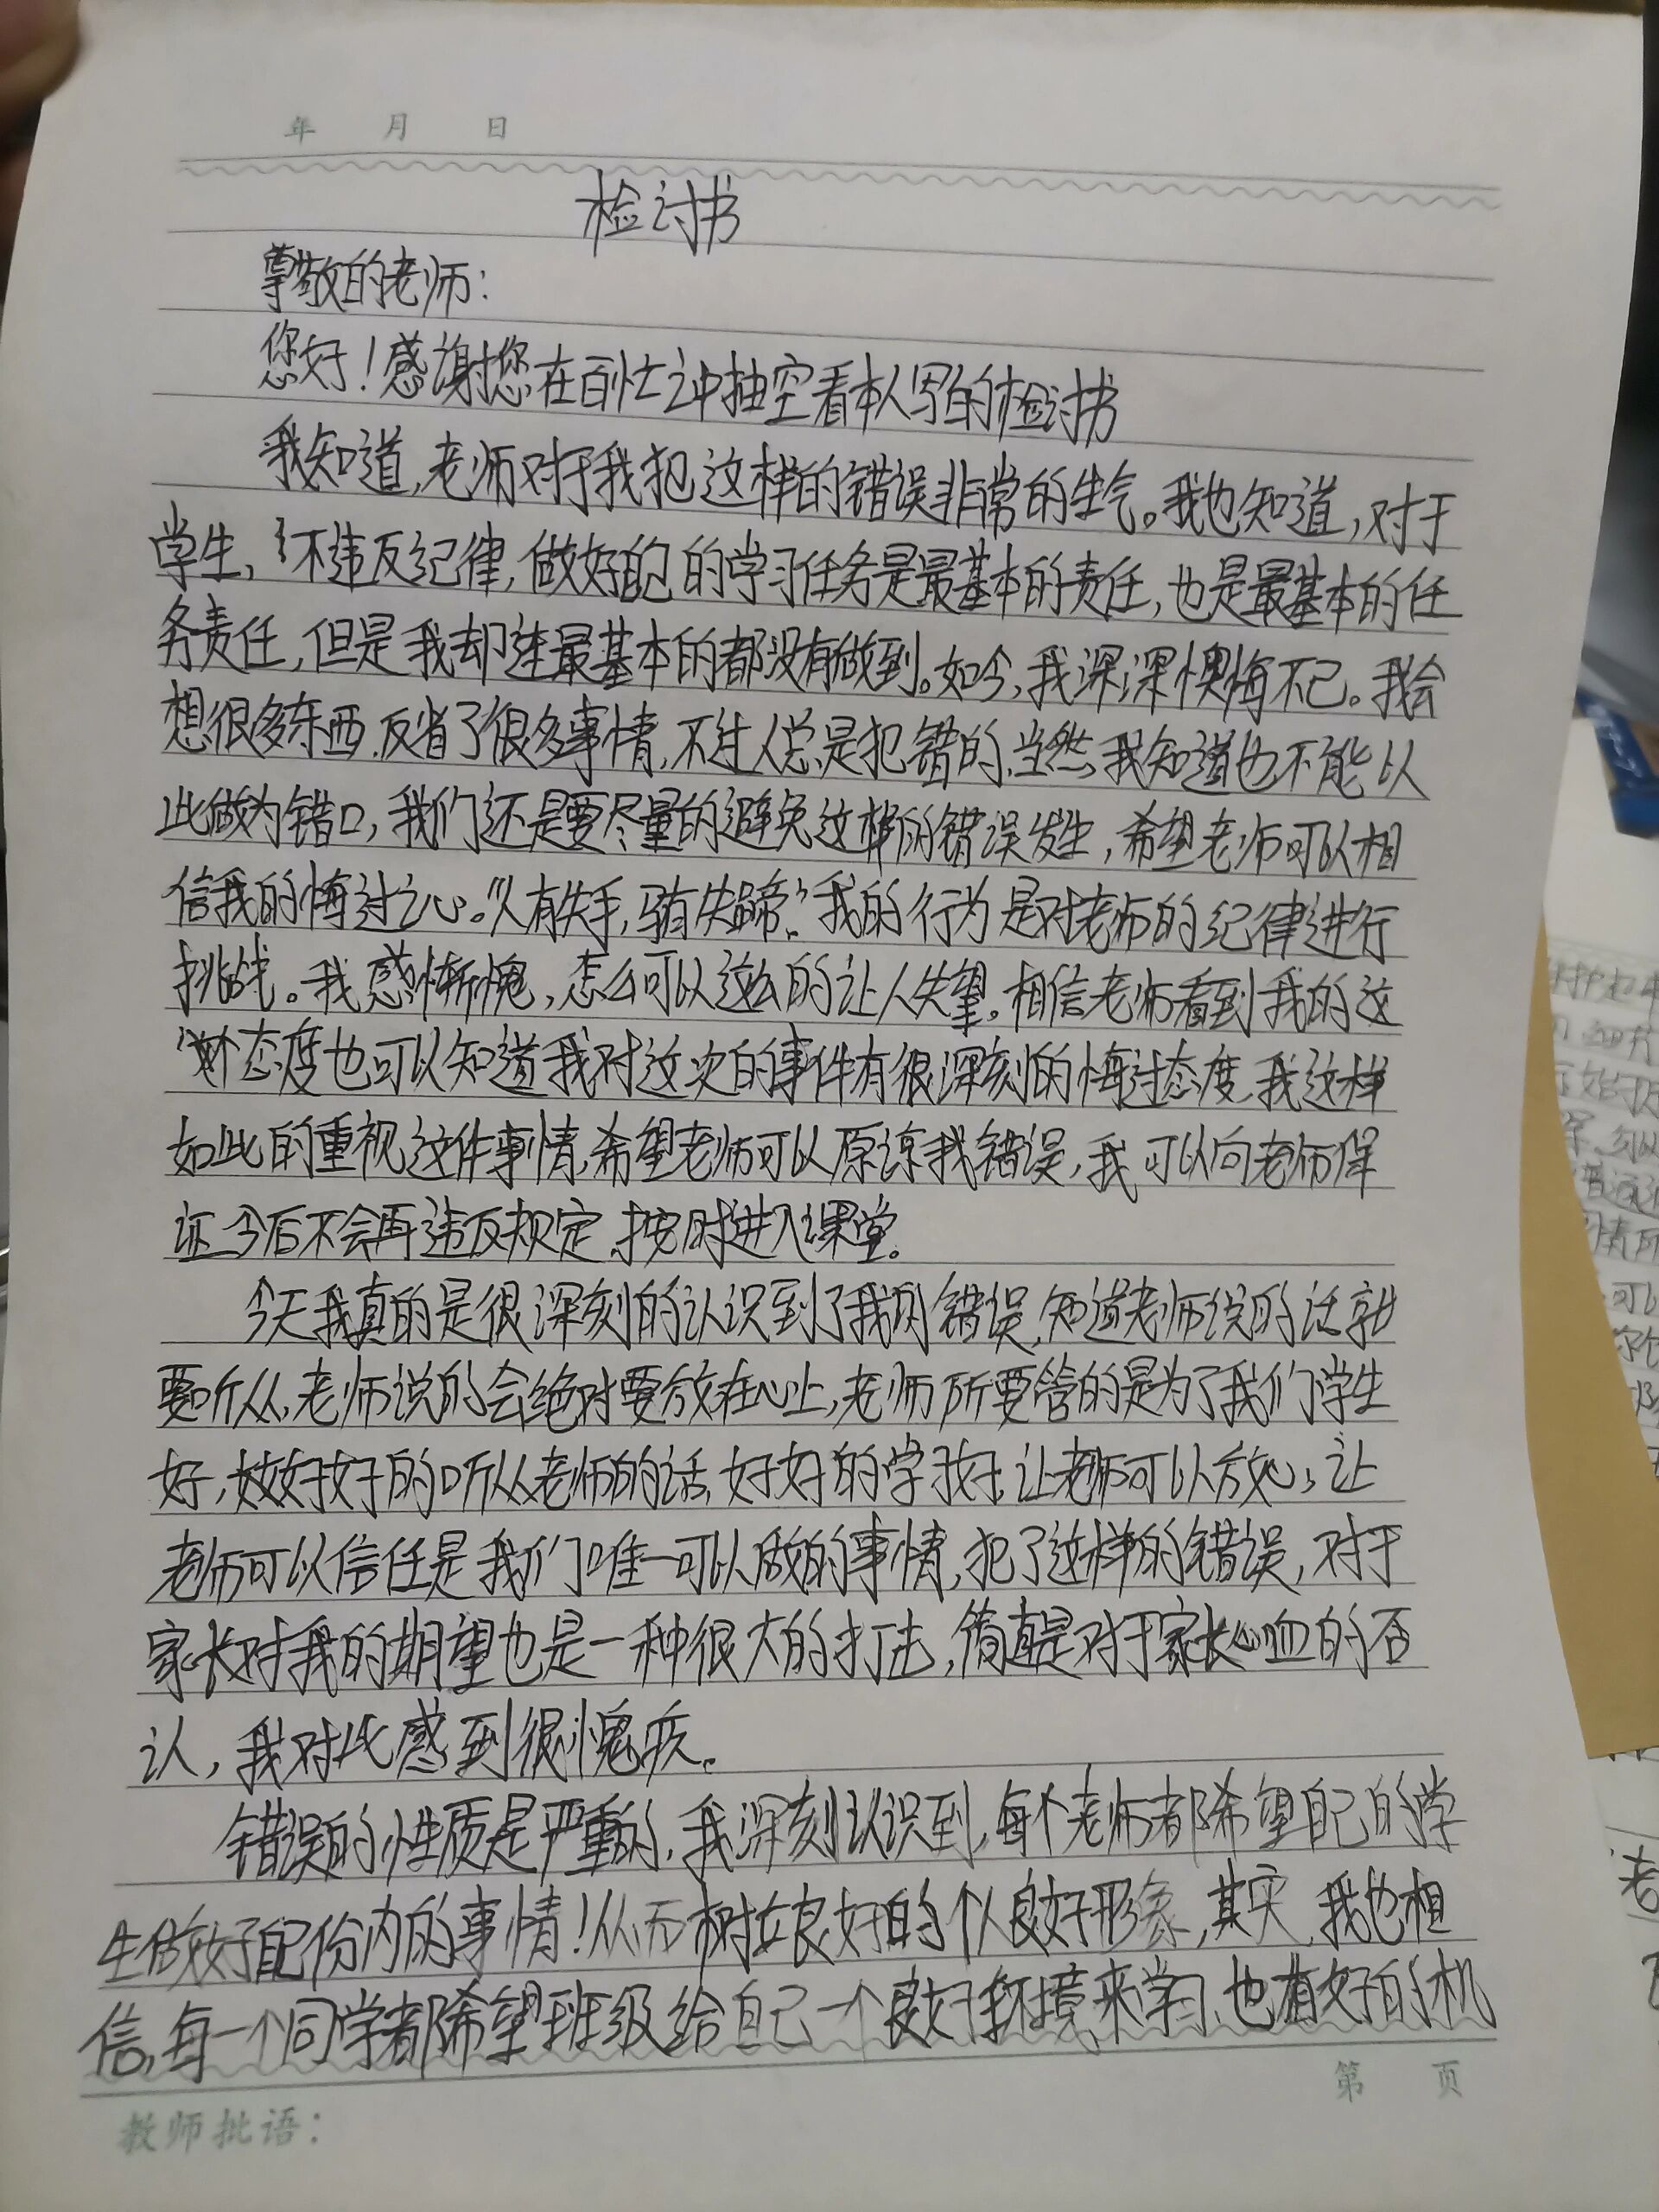 年 月 日
检讨书
尊敬的老师：
您好！感谢您在百忙之中抽空看本人写的检讨书
我知道，老师对于我犯这样的错误非常的生气。我也知道，对于
学生，不违反纪律，做好自己的学习任务是最基本的责任，也是最基本的任
务责任，但是我却连最基本的都没有做到。如今，我深深懊悔不已。我会
想很多东西，反省了很多事情，不过人总是犯错的，当然，我知道也不能以
此做为错口，我们还是要尽量的避免这样的错误发生，希望老师可以相
信我的悔过之心。“人有失手，马有失蹄”。我的行为是对老师的纪律进行
挑战。我感惭愧，怎么可以这么的让人失望。相信老师看到我的这
个态度也可以知道我对这次的事件有很深刻的悔过态度，我这样
如此的重视这件事情，希望老师可以原谅我错误，我可以向老师保
证今后不会再违反规定，按时进入课堂。
今天我真的是很深刻的认识到了我的错误，知道老师说的话就
要听从，老师说的会绝对要放在心上，老师所要管的是为了我们学生
好，好好的听从老师的话，好好的学好，让老师可以放心，让
老师可以信任是我们唯一可以做的事情，犯了这样的错误，对于
家长对我的期望也是一种很大的打击，简直是对于家长心血的否
认，我对此感到很愧疚。
错误的性质是严重的，我深刻认识到，每个老师都希望自己的学
生做好自己份内的事情！从而树立良好的个人良好形象，其实，我也相
信，每一个同学都希望班级给自己一个良好环境来学习，也有好的机
第 页
教师批语：